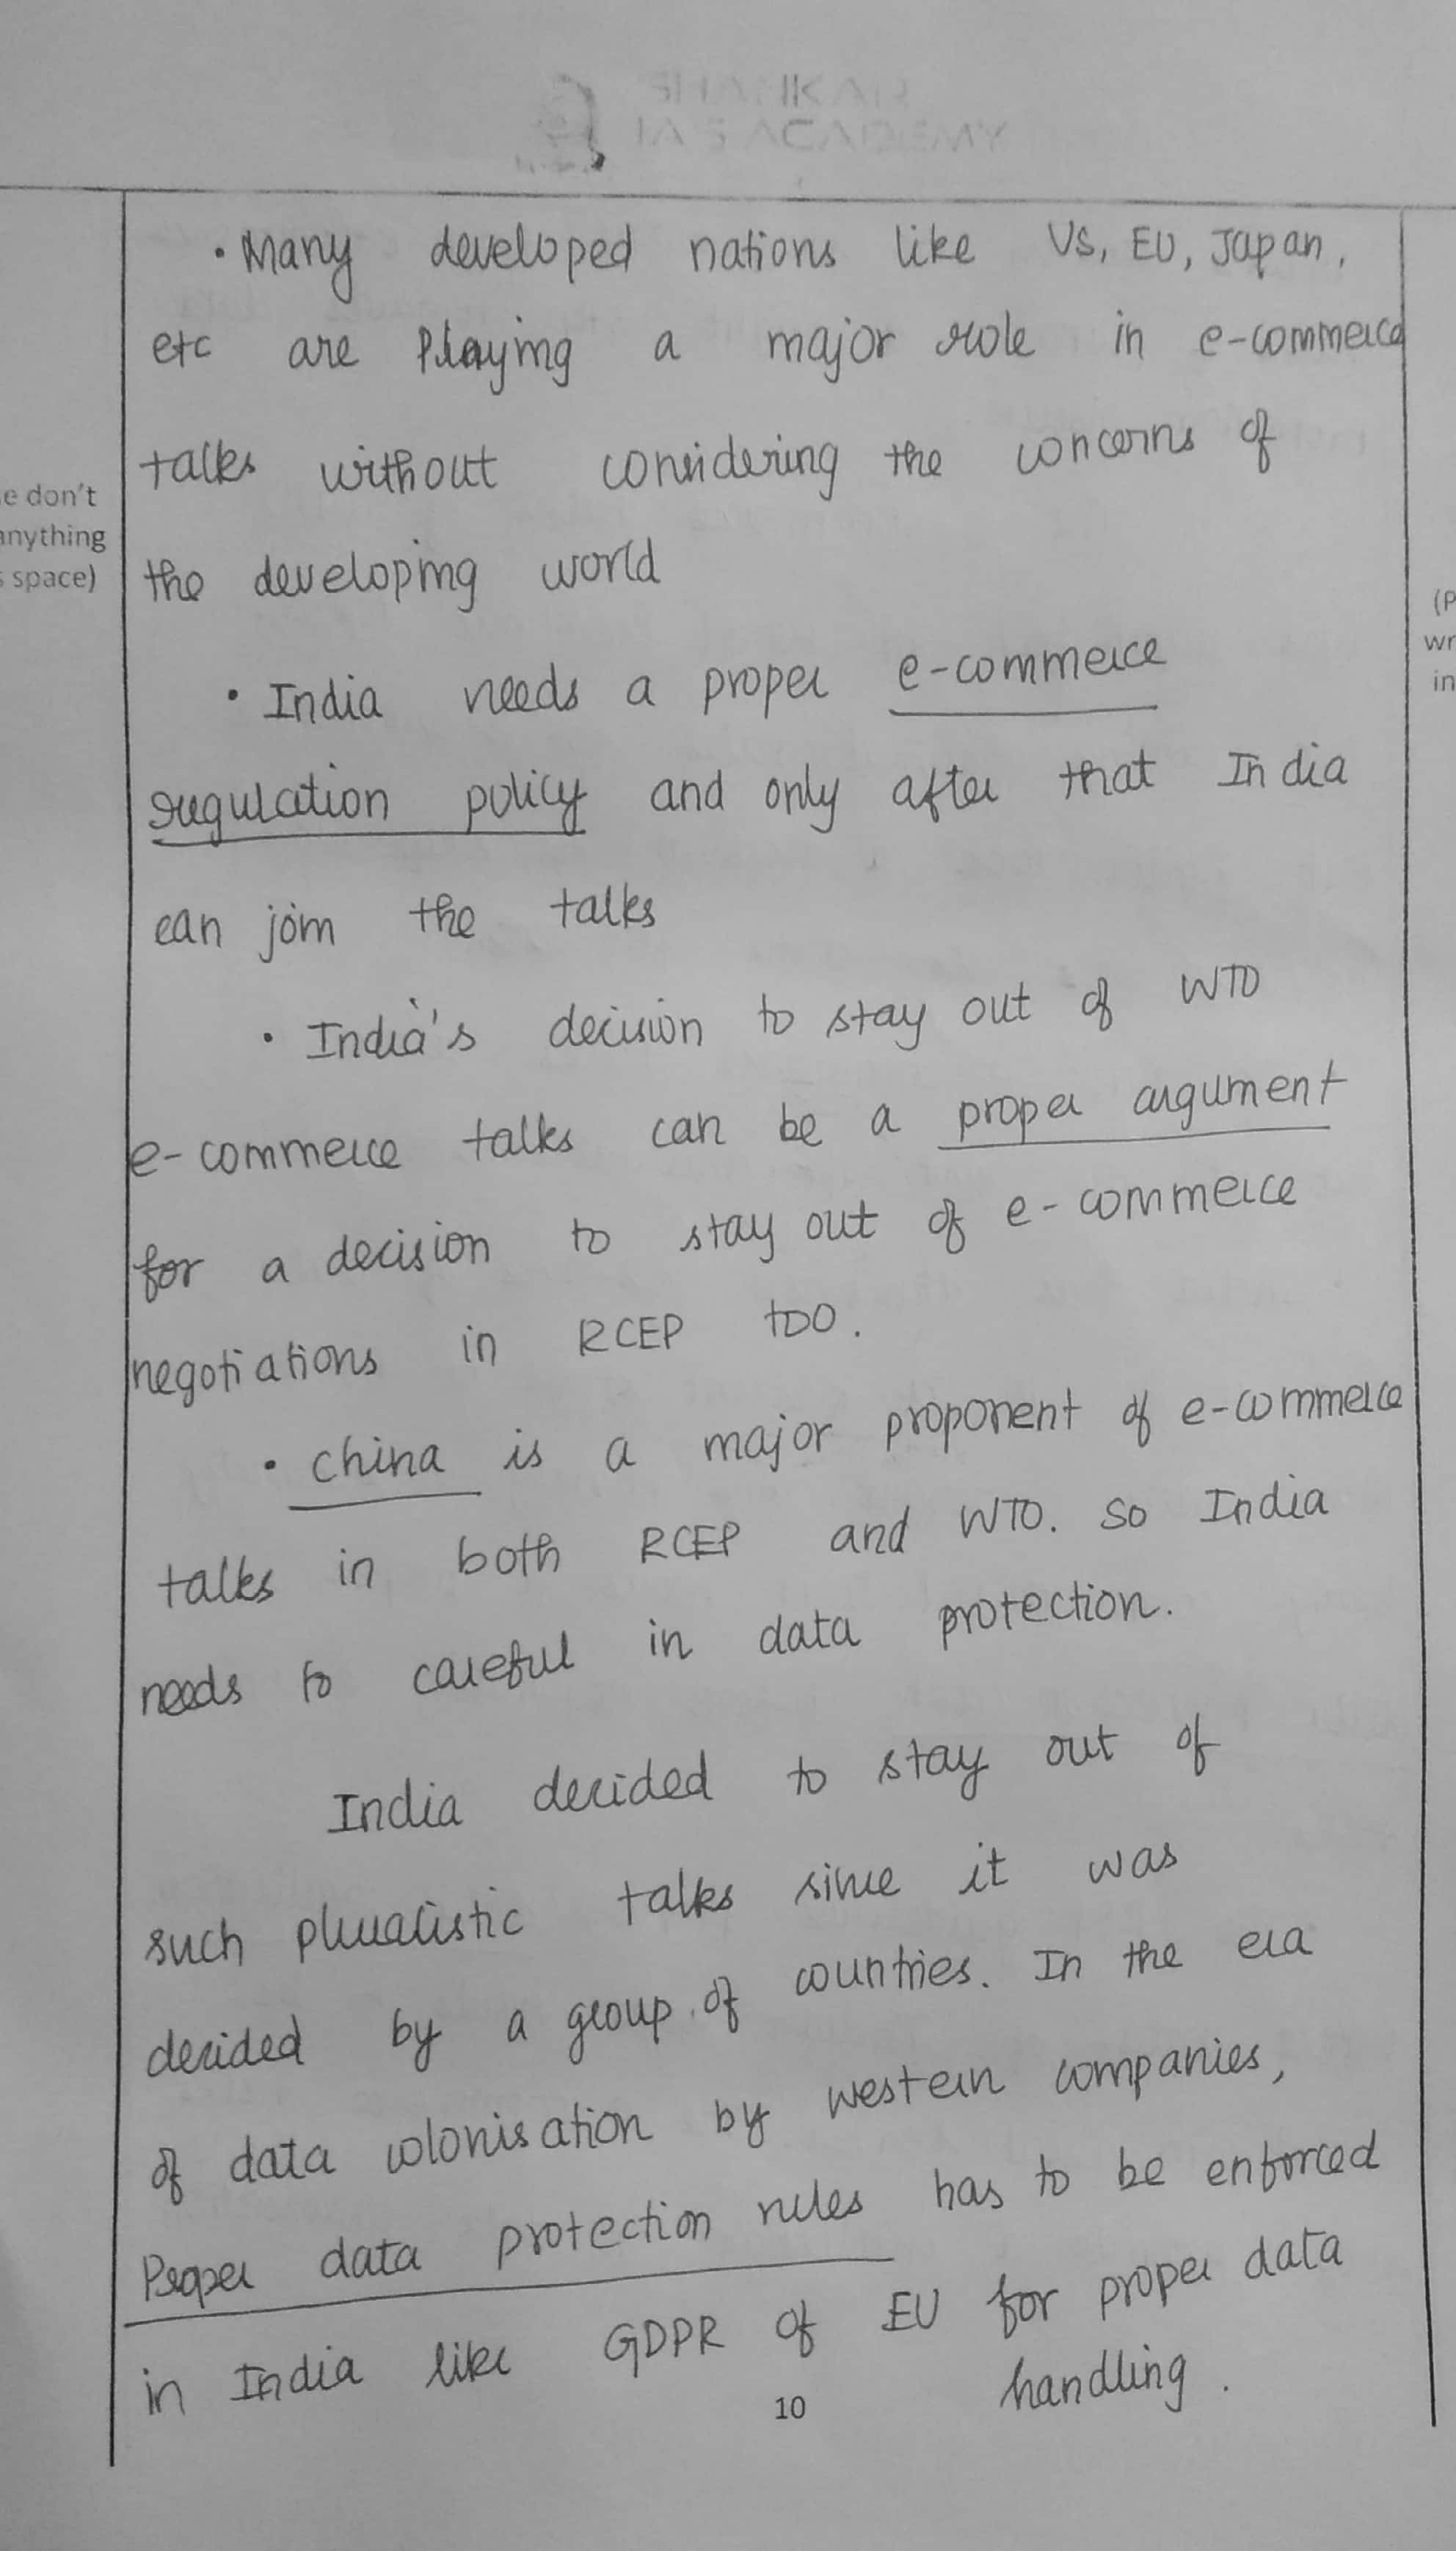 SHANKAR
IAS ACADEMY
• Many developed nations like US, EU, Japan,
etc are Playing a major role in e-commerce
talks without considering the concerns of
e don't
anything
s space)
the developing world
(P
wr
in
• India needs a proper e-commerce
regulation policy and only after that India
can join the talks
• India's decision to stay out of WTO
e-commerce talks can be a proper argument
for a decision to stay out of e-commerce
negotiations in RCEP too.
• china is a major proponent of e-commerce
talks in both RCEP and WTO. So India
needs to careful in data protection.
India decided to stay out of
such pluralistic talks since it was
decided by a group of countries. In the era
of data colonisation by western companies,
Proper data protection rules has to be enforced
in India like GDPR of EU for proper data
handling.
10